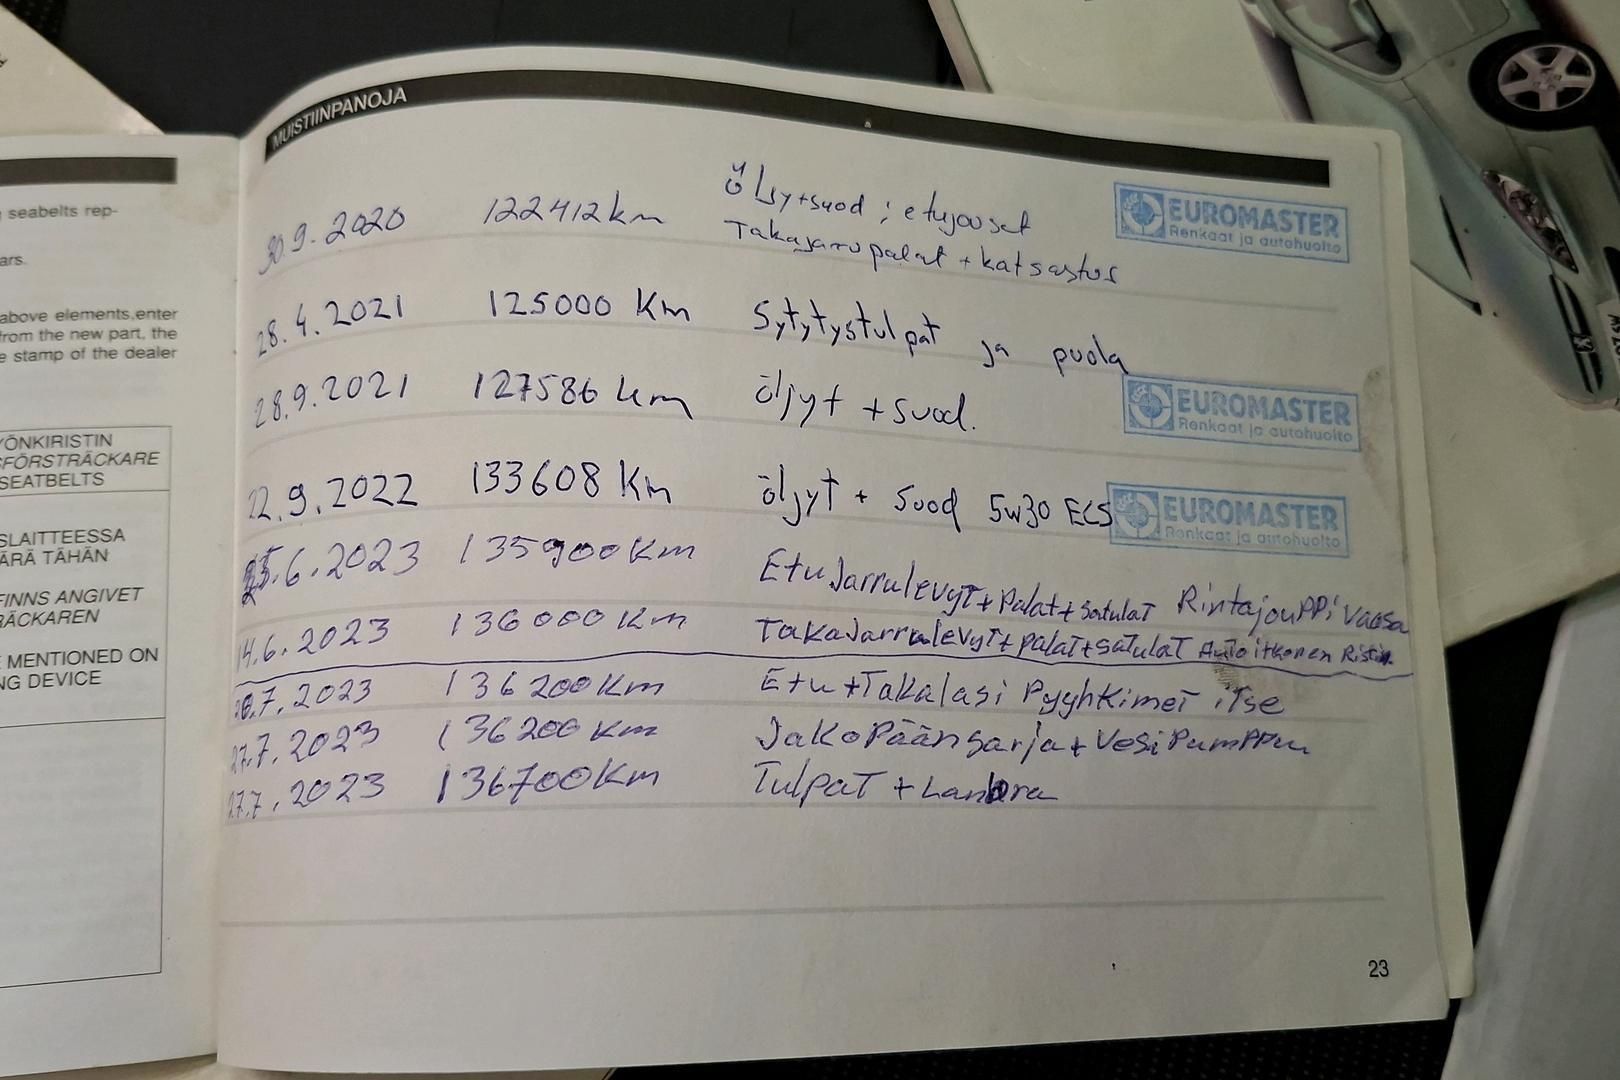 seabelts rep-
ars.
above elements,enter
from the new part, the
e stamp of the dealer
YÖNKIRISTIN
SFÖRSTRÄCKARE
SEATBELTS
SLAITTEESSA
ÄRÄ TÄHÄN
FINNS ANGIVET
RÄCKAREN
E MENTIONED ON
NG DEVICE
MUISTIINPANOJA
30.9.2020 122412km Öljy+suod ; etujouset
Takajarrupalat + katsastus
EUROMASTER
Renkaat ja autohuolto
28.4.2021 125000 Km Sytytystulpat ja puola
28.9.2021 127586 km öljyt + suod.
EUROMASTER
Renkaat ja autohuolto
22.9.2022 133608 Km öljyt + Suod 5w30 ECS
EUROMASTER
Renkaat ja autohuolto
.6.2023 135900Km Etu Jarrulevyt+Palat+satulat Rintajouppi Vaasa
14.6.2023 136000 Km Takajarrulevyt+palat+satulat
.7.2023 136200Km Etu+Takalasi Pyyhkimet itse
27.7.2023 136200 Km JakoPäänsarja+VesiPumppu
27.7.2023 136700Km Tulpat +
23